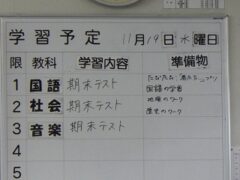 学習予定 11月19日水曜日
限 教科 学習内容 準備物
1 国語 期末テスト
国語の学習
2 社会 期末テスト 地理のワーク
歴史のワーク
3 音楽 期末テスト